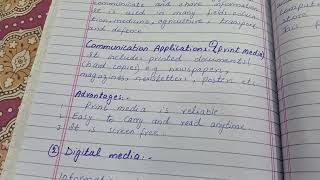 communicate and share information
is used in many
tion, medicine, agriculture, transport
and defence.
Communication Applications (Print media)
It includes printed documents
(hard copies) e.g. newspapers,
magazines, newsletters, posters etc.
Advantages:-
1. Print media is reliable
2. Easy to carry and read anytime.
3. It is screen free.
② Digital media:-